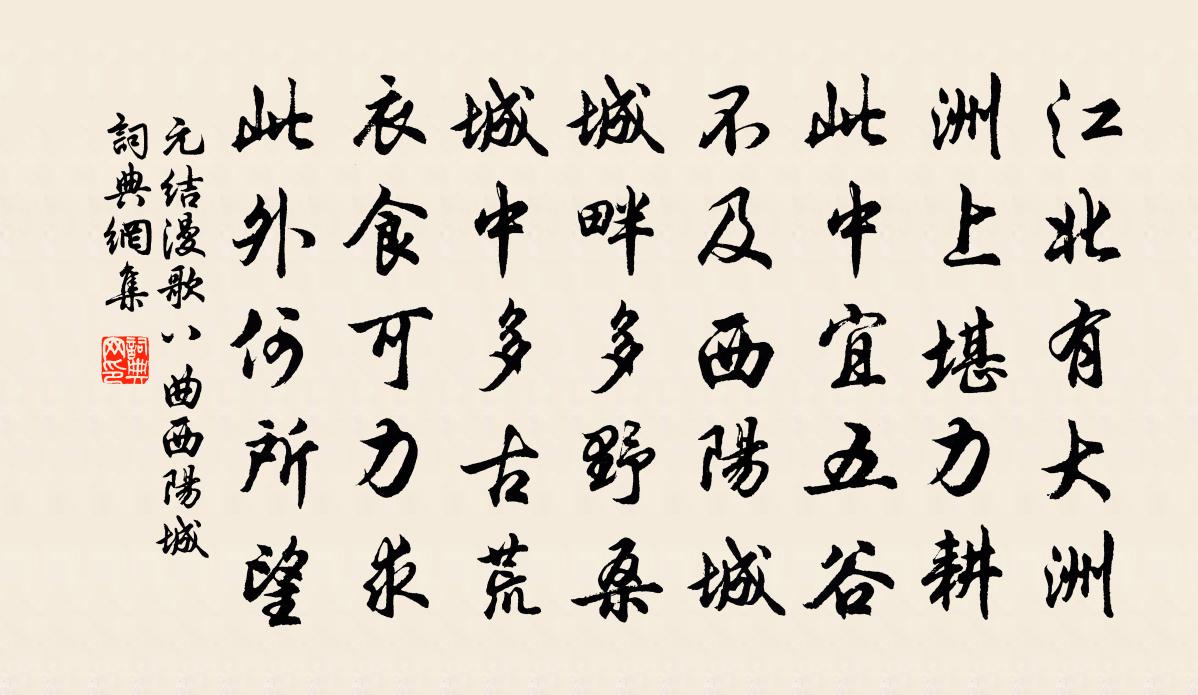 江北有大洲
洲上堪力耕
此中宜五谷
不及西陽城
城畔多野桑
城中多古荒
衣食可力求
此外何所望
元结漫歌八曲西陽城
詞典網集
詞典网印